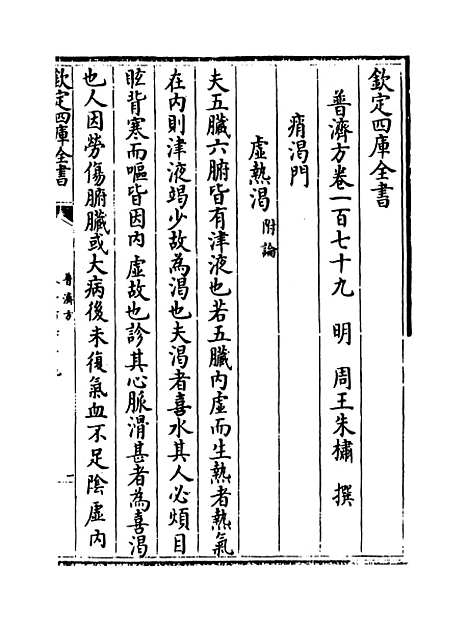 欽定四庫全書
普濟方卷一百七十九 明 周王朱橚 撰
痟渴門
虛熱渴附論
夫五臟六腑皆有津液也若五臟內虛而生熱者熱氣
在內則津液竭少故為渴也夫渴者喜水其人必煩目
眩背寒而嘔皆因內虛故也診其心脈滑甚者為喜渴
也人因勞傷腑臟或大病後未復氣血不足陰虛內
欽定四庫全書
普濟方
一